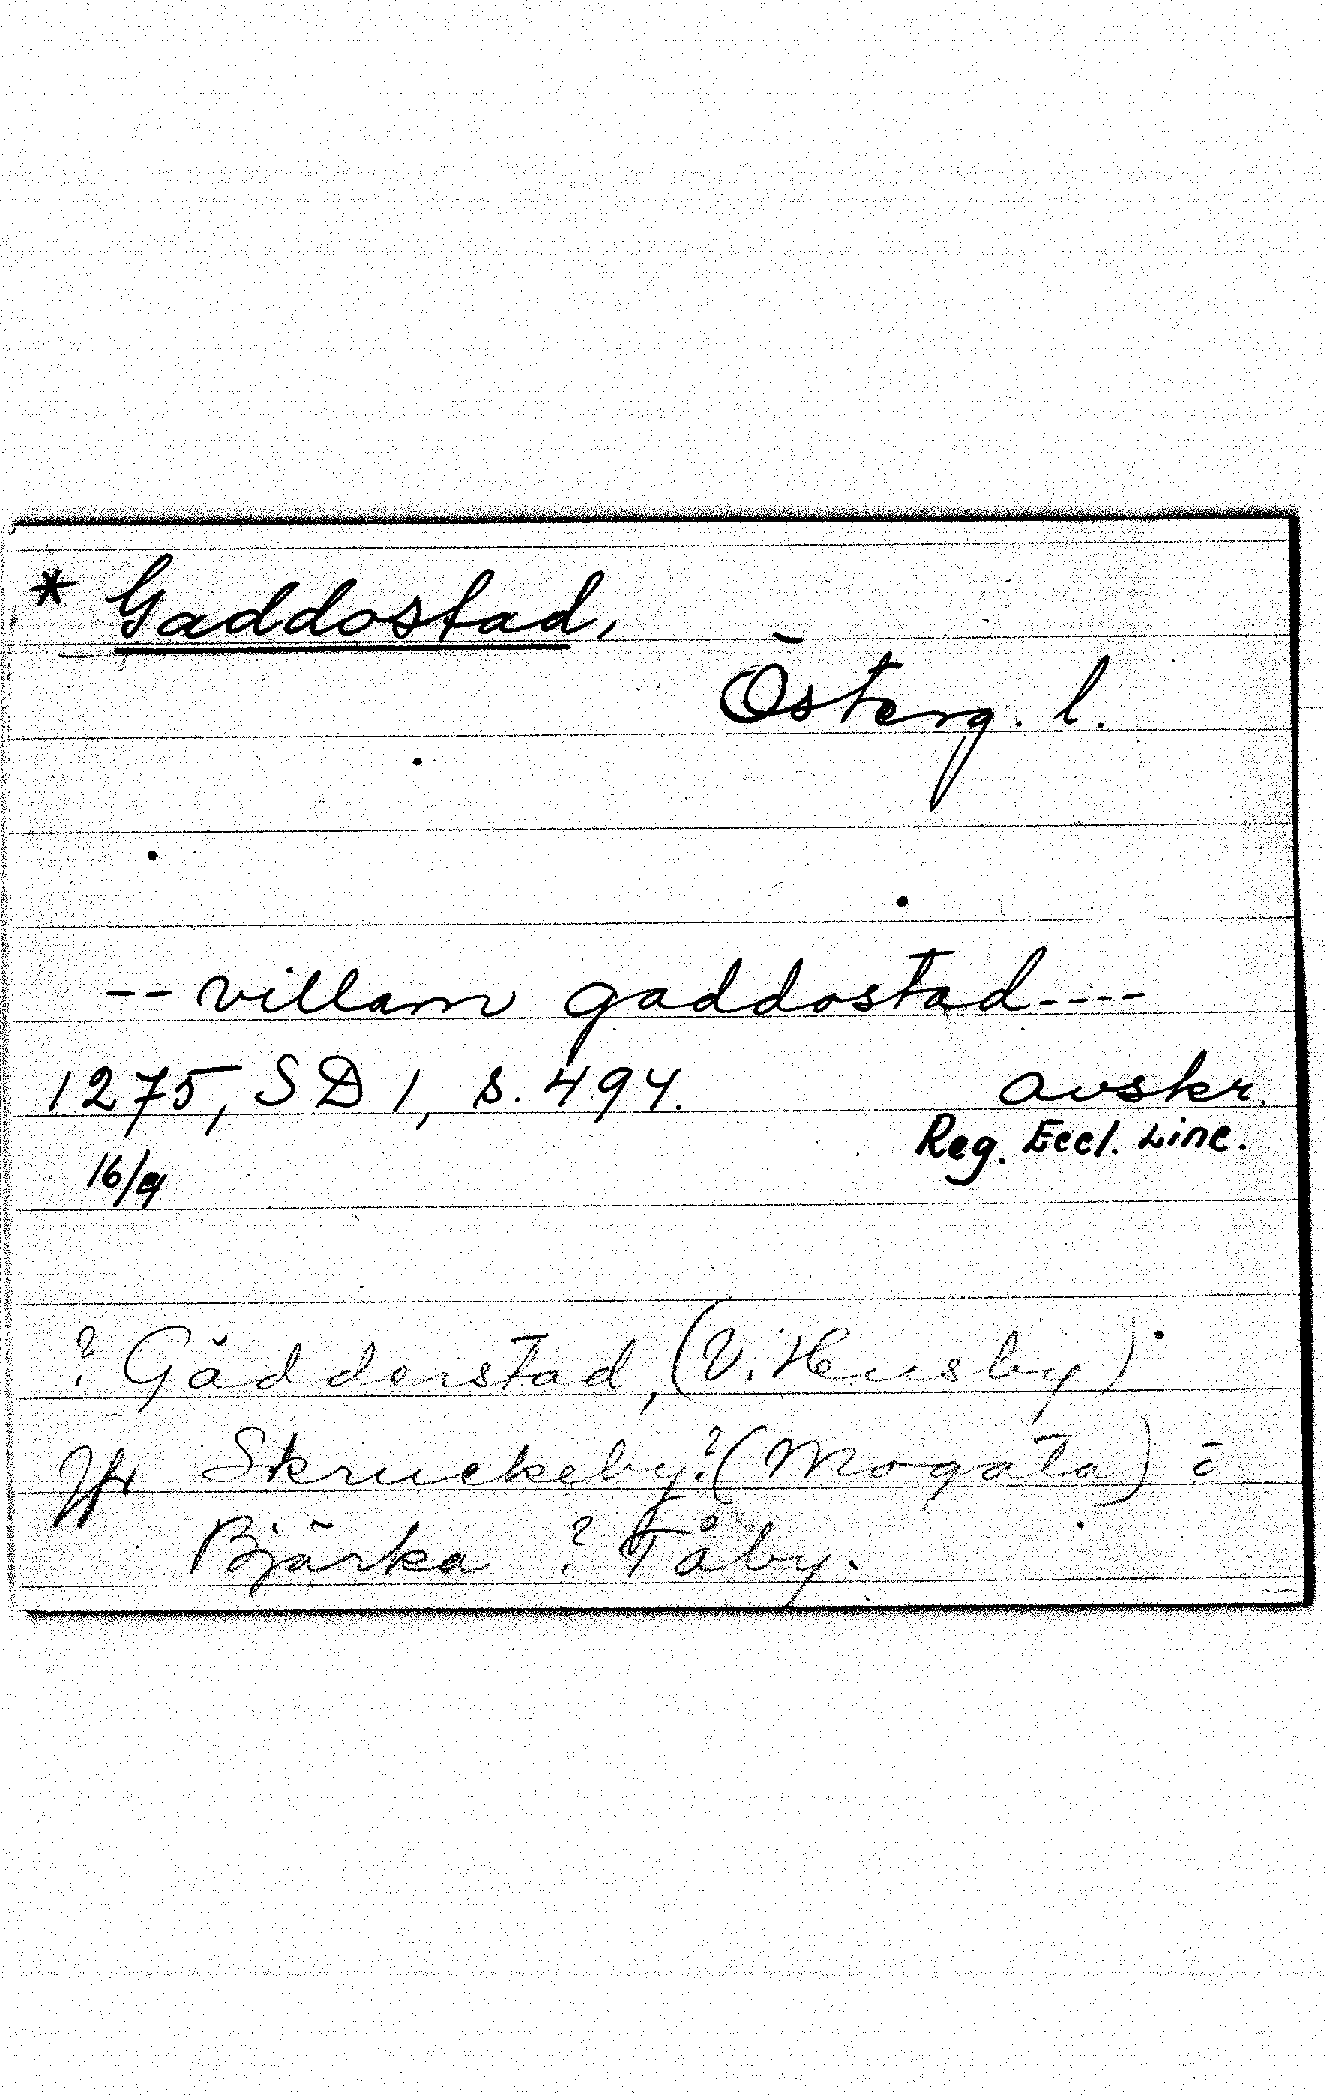 * Gaddostad,
Österg. l.
-- villam gaddostad ----
1275, SD 1, s. 494. avskr.
16/9 Reg. Eccl. Linc.
? Gädderstad, (V. Husby)
Jfr Skruckeby? (Mogata) o
Bjärka ? Tåby.